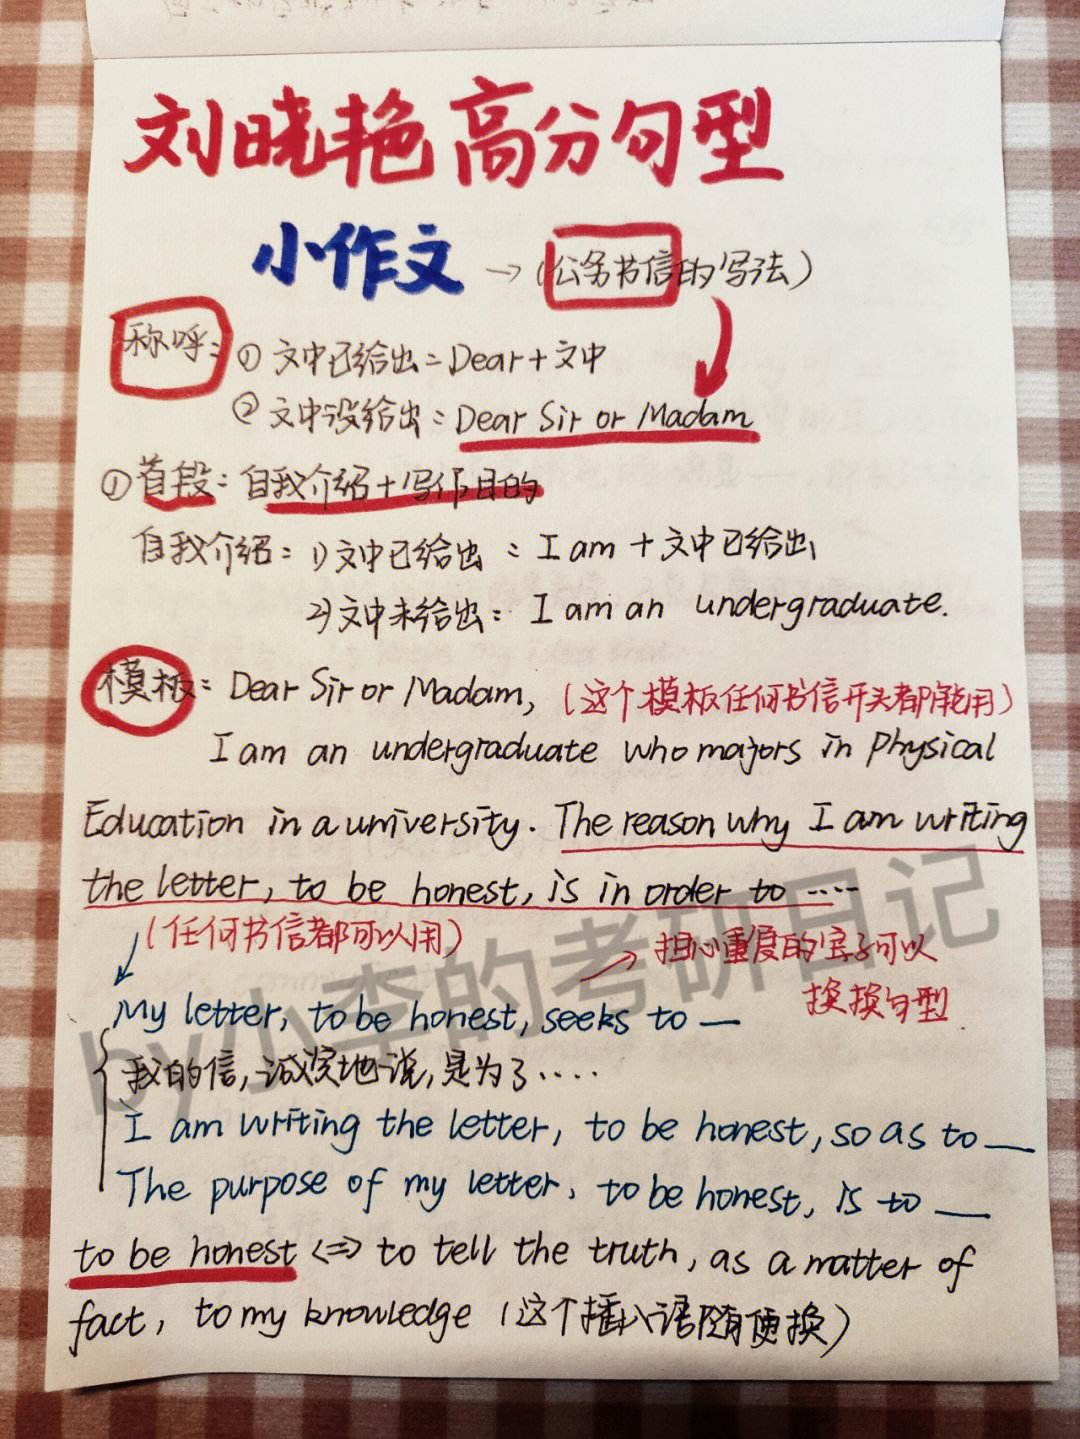 刘晓艳高分句型
小作文 →(公务书信的写法)
称呼: ① 文中已给出=Dear+文中
② 文中没给出=Dear Sir or Madam
①首段:自我介绍+写作目的
自我介绍: 1)文中已给出 = I am + 文中已给出
2)文中未给出= I am an undergraduate.
模板: Dear Sir or Madam, (这个模板任何书信开头都能用)
I am an undergraduate who majors in physical
Education in a university. The reason why I am writing
the letter, to be honest, is in order to ····
(任何书信都可以用)
→ 担心重复的宝子可以
换换句型
My letter, to be honest, seeks to __
我的信,诚实地说,是为了····
I am writing the letter, to be honest, so as to __
The purpose of my letter, to be honest, is to __
to be honest <=> to tell the truth, as a matter of
fact, to my knowledge (这个插入语随便换)
by小李的考研日记